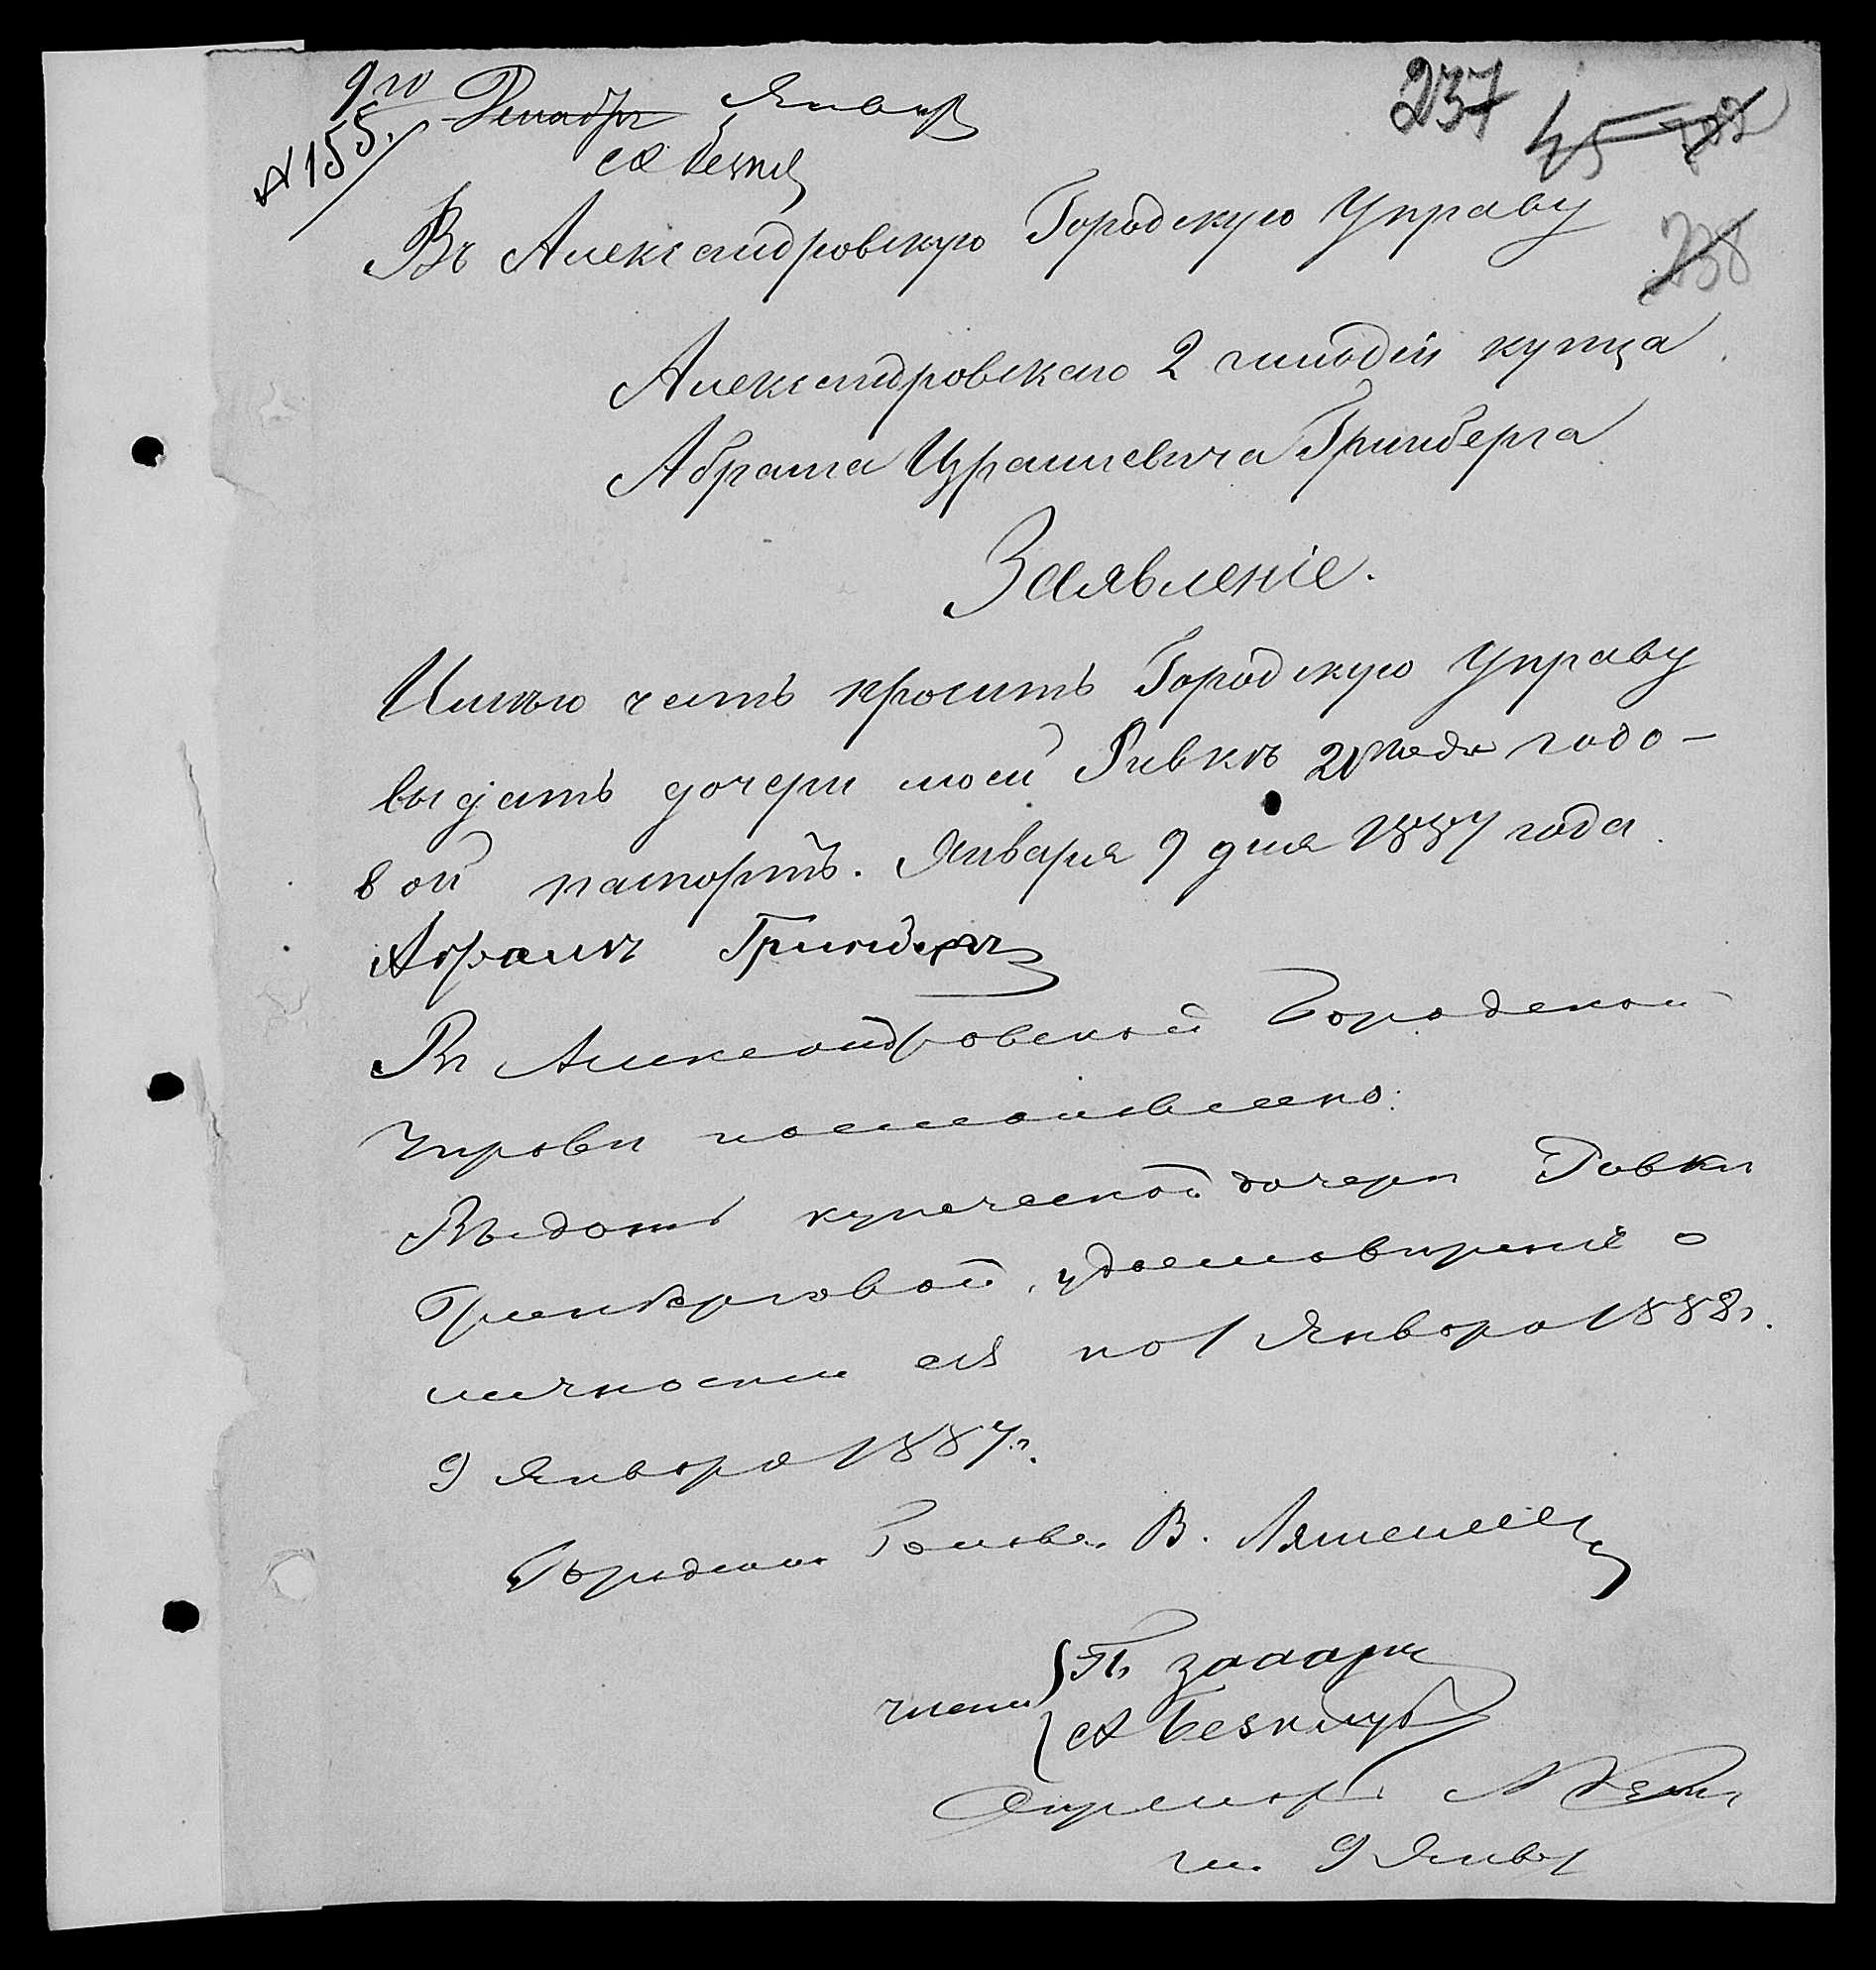 9го Декабря Январ
№ 155.
237 45
238
Въ Александровскую Городскую Управу
Александровскаго 2 гильдіи купца
Абрама Израилевича Гринберга
Заявленіе.
Имѣю честь просить Городскую Управу
выдать дочери моей Ривкѣ 21 года годо-
вой паспортъ. Января 9 дня 1887 года.
Абрамъ Гринбергъ
Въ Александровской Городской
Управѣ постановлено:
Выдать купеческой дочери Ривкѣ
Гринберговой, удостовѣреніе о
личности ея по 1 Января 1888 г.
9 Января 1887 г.
Городской Голова В. Ляшенко
члены
А Безклуб
Секретарь
9 Январ